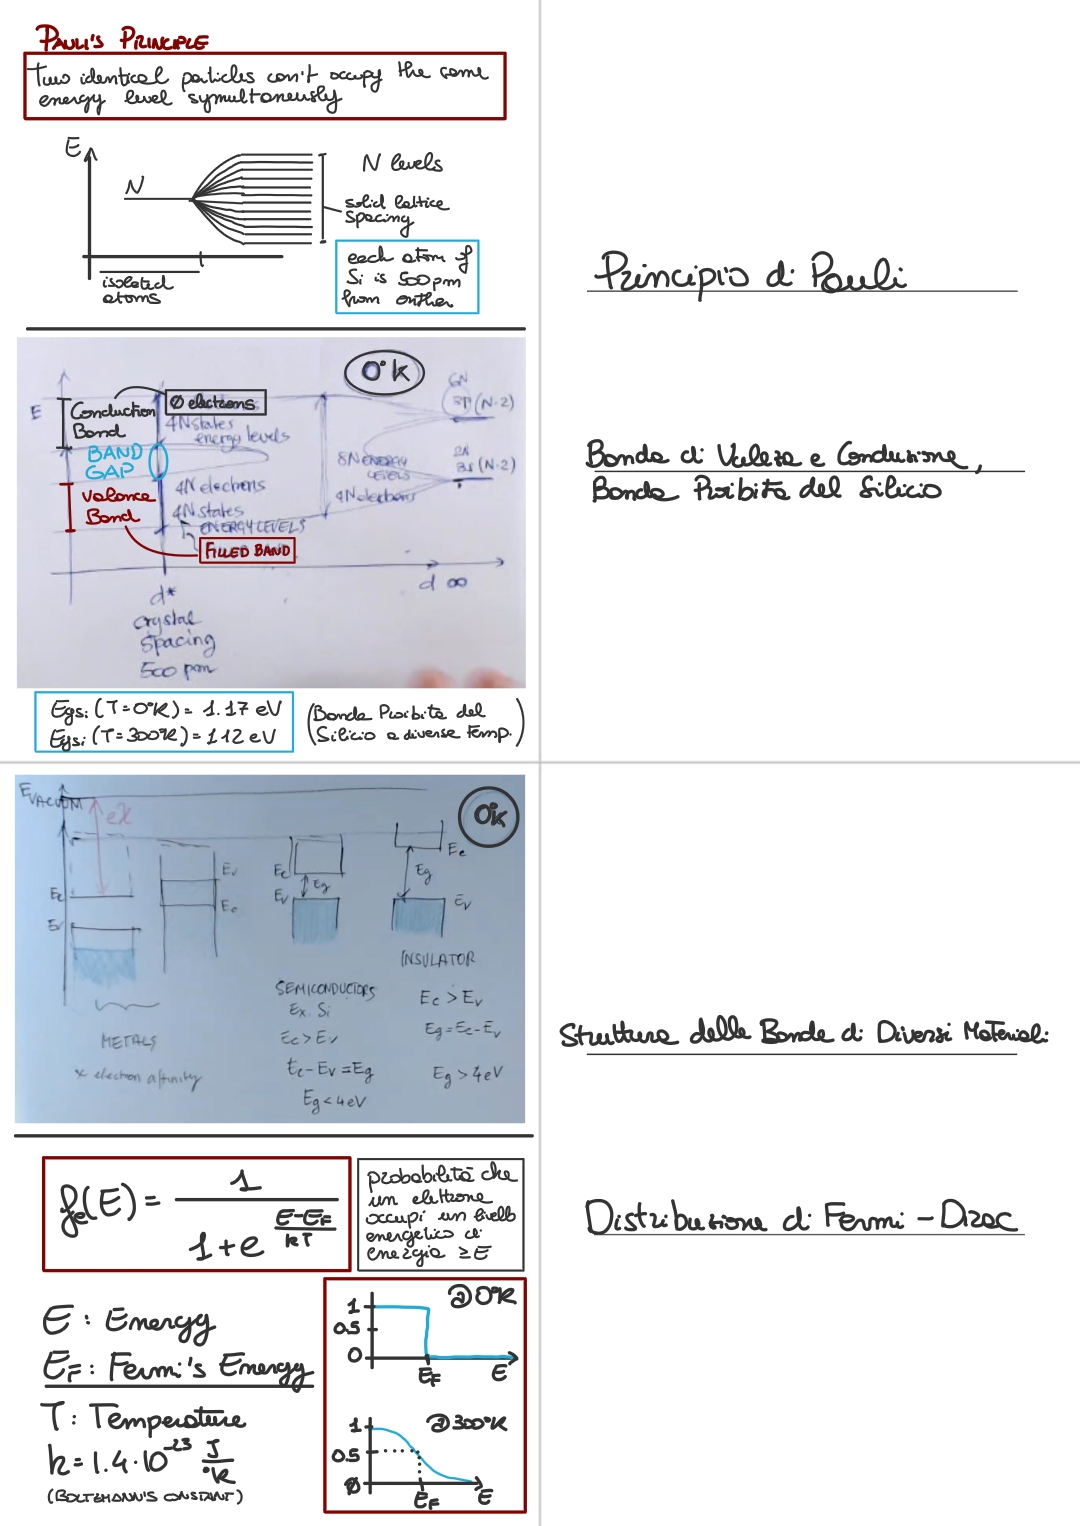 PAULI'S PRINCIPLE
Two identical particles can't occupy the same
energy level symultaneously
E
N
N levels
solid lattice
spacing
isolated
atoms
each atom of
Si is 500 pm
from onther
Principio di Pauli
0°K
E
Conduction
Band
0 electrons
4N states
energy levels
BAND
GAP
Valance
Band
4N electrons
4N states
ENERGY LEVELS
FILLED BAND
8N ENERGY
LEVELS
4N electrons
6N
3P (N-2)
2N
3s (N-2)
d ∞
d*
crystal
spacing
500 pm
Banda di Valeza e Conduzione,
Banda Proibita del Silicio
Egsi (T=0°K) = 1.17 eV
Egsi (T=300°K) = 1.12 eV
(Banda Proibita del
Silicio a diverse Temp.)
EVACUUM
eX
0°K
Ec
Ev
Ev
Ec
Ec
Eg
Ev
Ec
Eg
Ev
METALS
x electron affinity
SEMICONDUCTORS
Ex. Si
Ec > Ev
Ec - Ev = Eg
Eg < 4eV
INSULATOR
Ec > Ev
Eg = Ec - Ev
Eg > 4eV
Struttura delle Bande di Diversi Materiali
fe(E) = 1 / (1 + e^((E-EF)/kT))
probabilità che
un elettrone
occupi un livello
energetico di
energia ≥ E
Distribuzione di Fermi - Dirac
E: Energy
EF: Fermi's Energy
T: Temperature
k = 1.4·10^-23 J/°K
(BOLTZMANN'S CONSTANT)
@0°K
1
0.5
0
EF
E
@300°K
1
0.5
0
EF
E